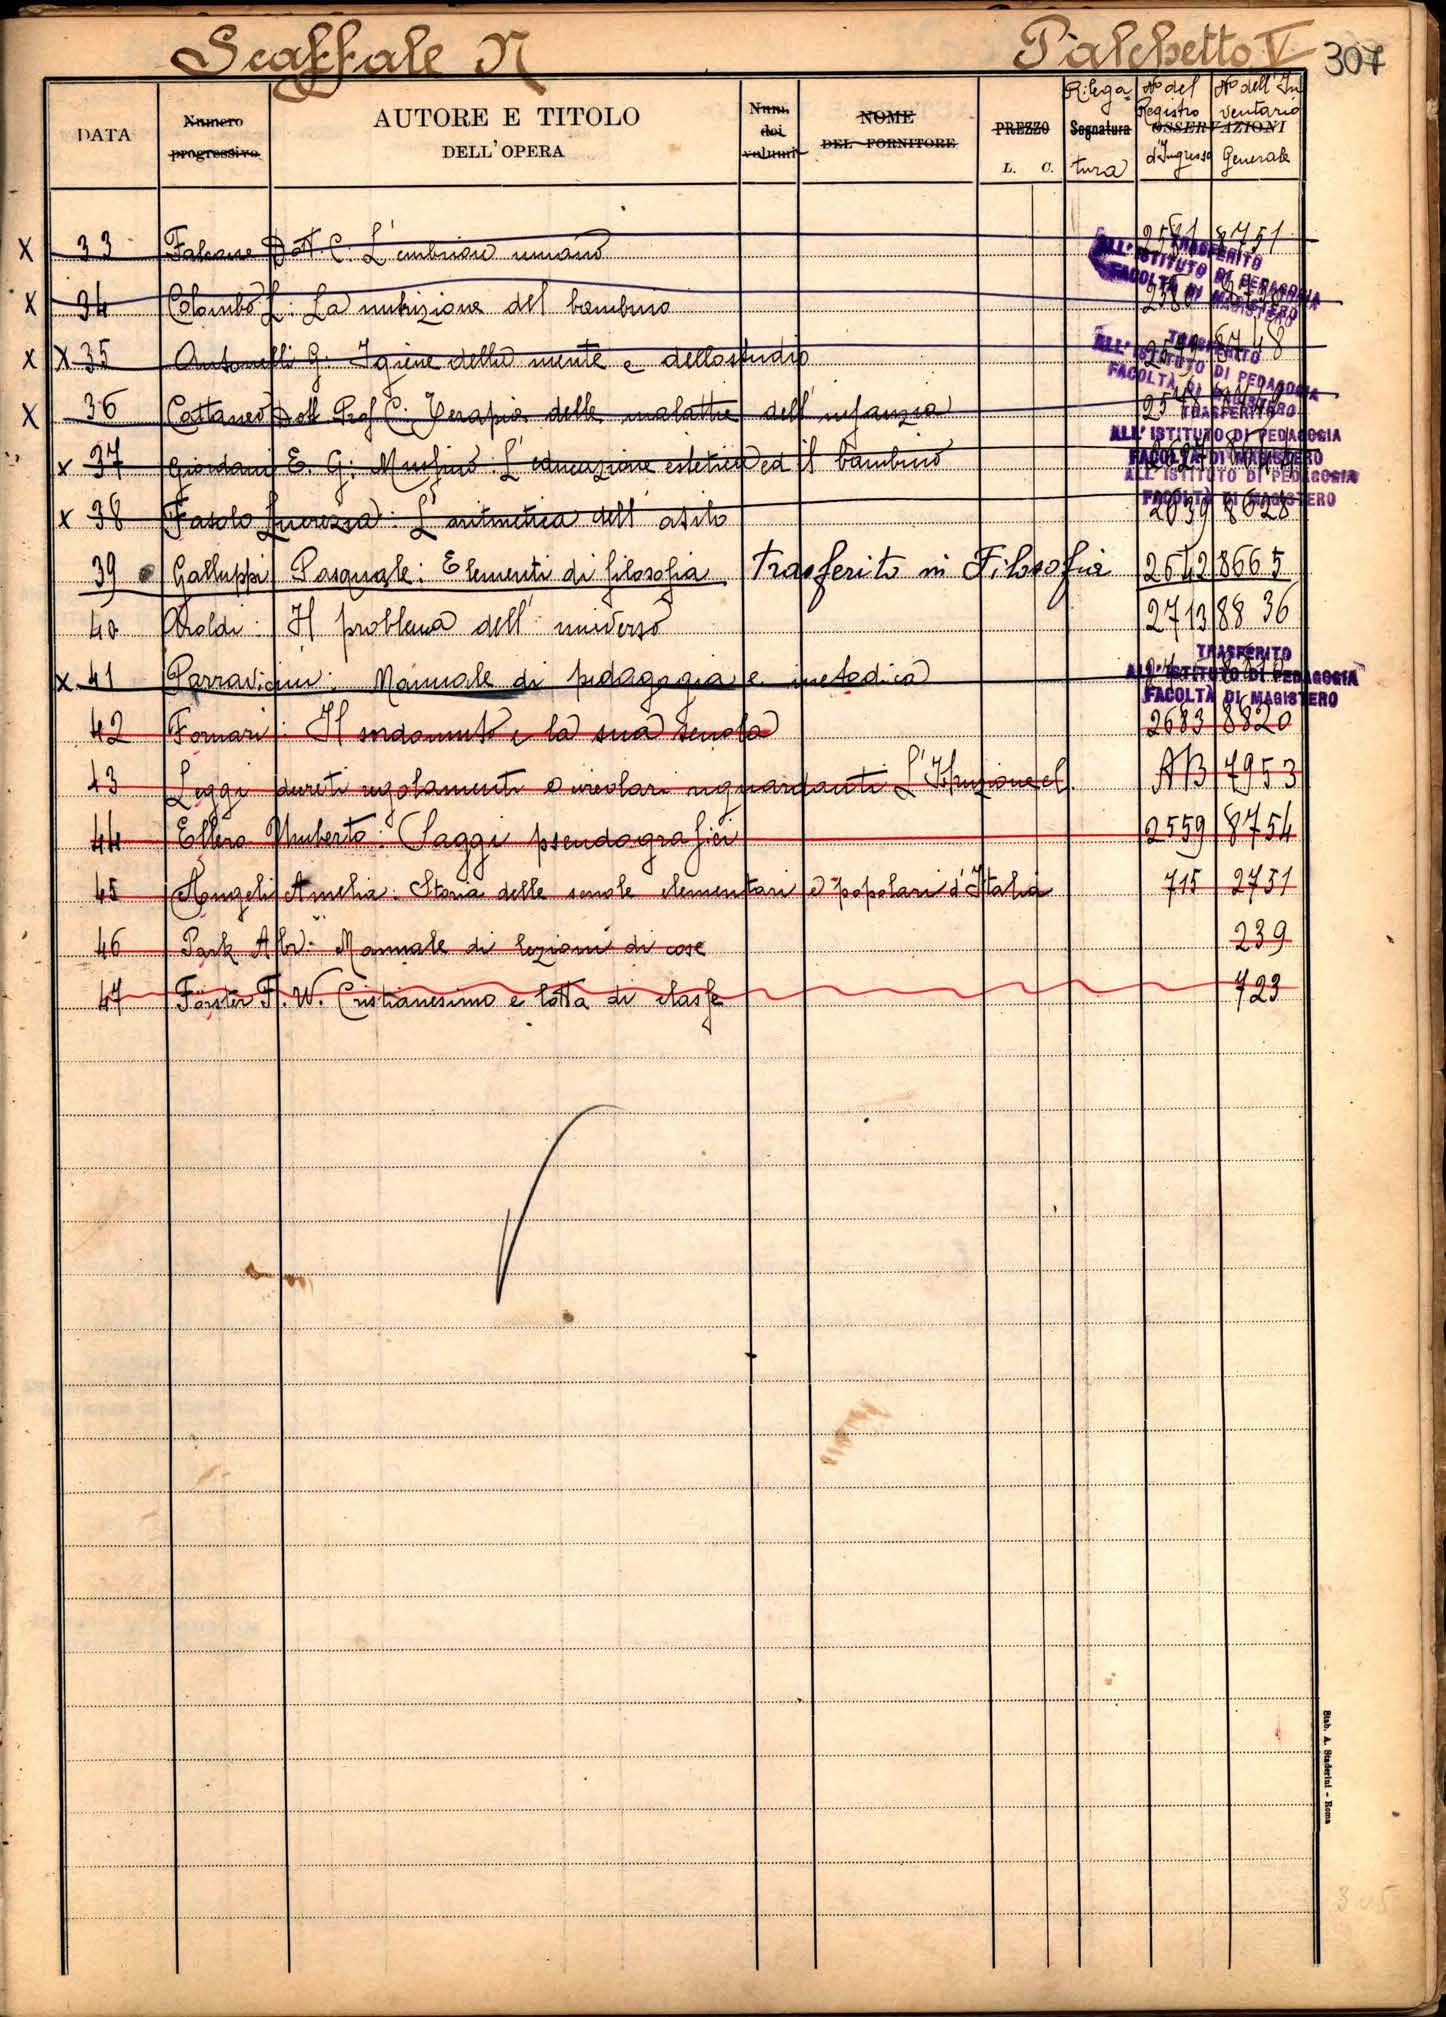 Scaffale N Palchetto V 307
DATA Numero progressivo AUTORE E TITOLO DELL'OPERA Num. dei volumi NOME DEL FORNITORE PREZZO L. C. Segnatura OSSERVAZIONI
Rilegatura No del Registro d'Ingresso No dell'Inventario Generale
X 33 Dott. C: L'embrione umano 8751
TRASFERITO
ALL'ISTITUTO DI PEDAGOGIA
FACOLTÀ DI MAGISTERO
X 34 Colombo L: La nutrizione del bambino
X X 35 Antonelli G. Igiene della mente e dello studio 8748
TRASFERITO
ALL'ISTITUTO DI PEDAGOGIA
FACOLTÀ DI MAGISTERO
X 36 Cattaneo Dott Prof C: Terapia delle malattie dell'infanzia
TRASFERITO
ALL'ISTITUTO DI PEDAGOGIA
FACOLTÀ DI MAGISTERO
x 37 Giordani E. G: L'educazione estetica ed il bambino
ALL'ISTITUTO DI PEDAGOGIA
FACOLTÀ DI MAGISTERO
x 38 Fasolo Lucrezia: L'aritmetica dell'asilo 2639 8628
39 Galluppi Pasquale: Elementi di filosofia Trasferito in Filosofia 2642 8665
40 Aroldi: Il problema dell'universo 2713 8836
x 41 Parravicini: Manuale di pedagogia e metodica
TRASFERITO
ALL'ISTITUTO DI PEDAGOGIA
FACOLTÀ DI MAGISTERO
42 Fornari: Il sordomuto e la sua scuola 2683 8820
43 Leggi decreti regolamenti e circolari riguardanti L'Istruzione el. AB 7953
44 Ellero Umberto: Saggi pseudografici 2559 8754
45 Angeli Amelia: Storia delle scuole elementari e popolari d'Italia 715 2751
46 Park Manuale di lezioni di cose 239
47 Förster F. W. Cristianesimo e lotta di classe 723
Stab. A. Staderini - Roma
305